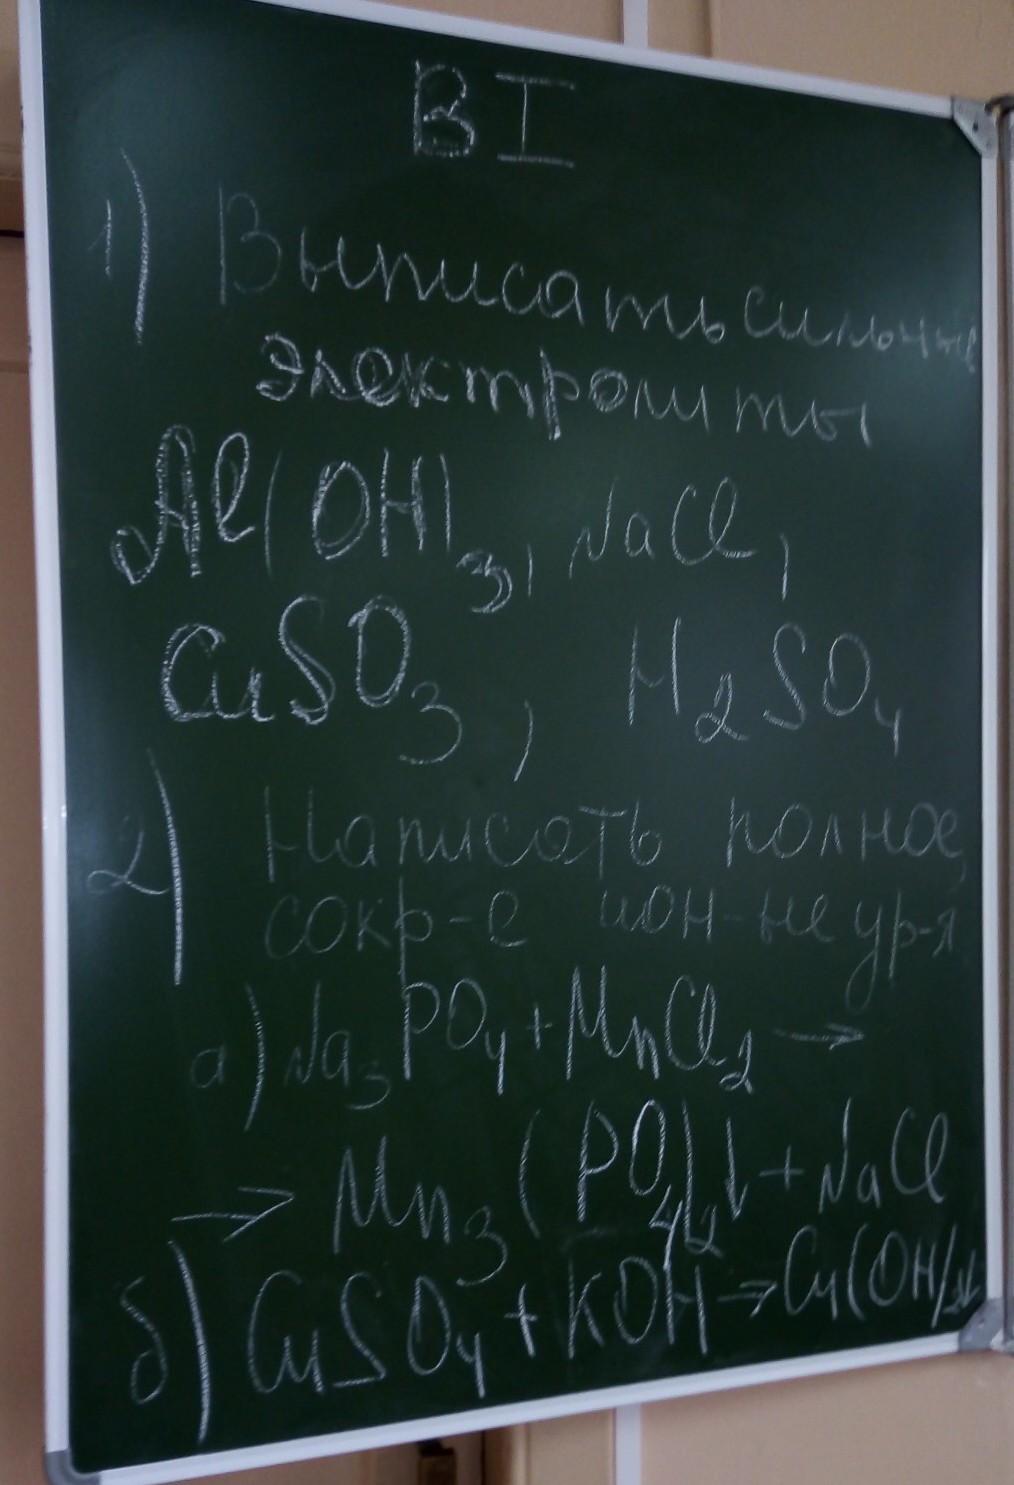 В I
1) Выписать сильные
электролиты
Al(OH)3, NaCl,
CuSO3, H2SO4
2) Написать полное,
сокр-е ион-не ур-я
а) Na3PO4 + MnCl2 →
→ Mn3(PO4)2↓ + NaCl
б) CuSO4 + KOH → Cu(OH)2↓